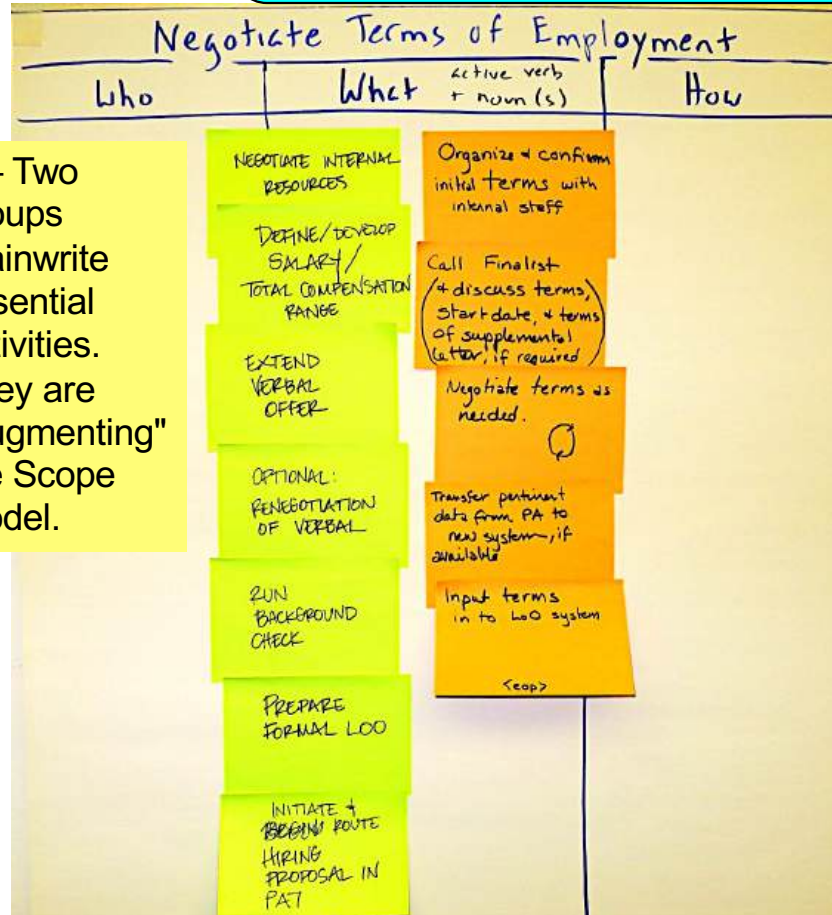 Negotiate Terms of Employment
Who
What
active verb
+ noun(s)
How
Two
oups
ainwrite
sential
tivities.
ey are
ugmenting"
e Scope
odel.
NEGOTIATE INTERNAL
RESOURCES
DEFINE/DEVELOP
SALARY/
TOTAL COMPENSATION
RANGE
EXTEND
VERBAL
OFFER
OPTIONAL:
RENEGOTIATION
OF VERBAL
RUN
BACKGROUND
CHECK
PREPARE
FORMAL LOO
INITIATE +
ROUTE
HIRING
PROPOSAL IN
PA7
Organize & confirm
initial terms with
internal staff
Call Finalist
(& discuss terms,
start date, & terms
of supplemental
letter, if required)
Negotiate terms as
needed.
Transfer pertinent
data from PA to
new system, if
available
Input terms
in to LoO system
<eop>